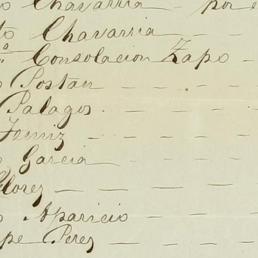 Chavarria - por
Chavarria -
Consolacion Zapo -
Postan - - -
Palagos - - -
- - - -
Garcia - - -
Florez - - - -
Aparicio - - -
pe Perez - - -